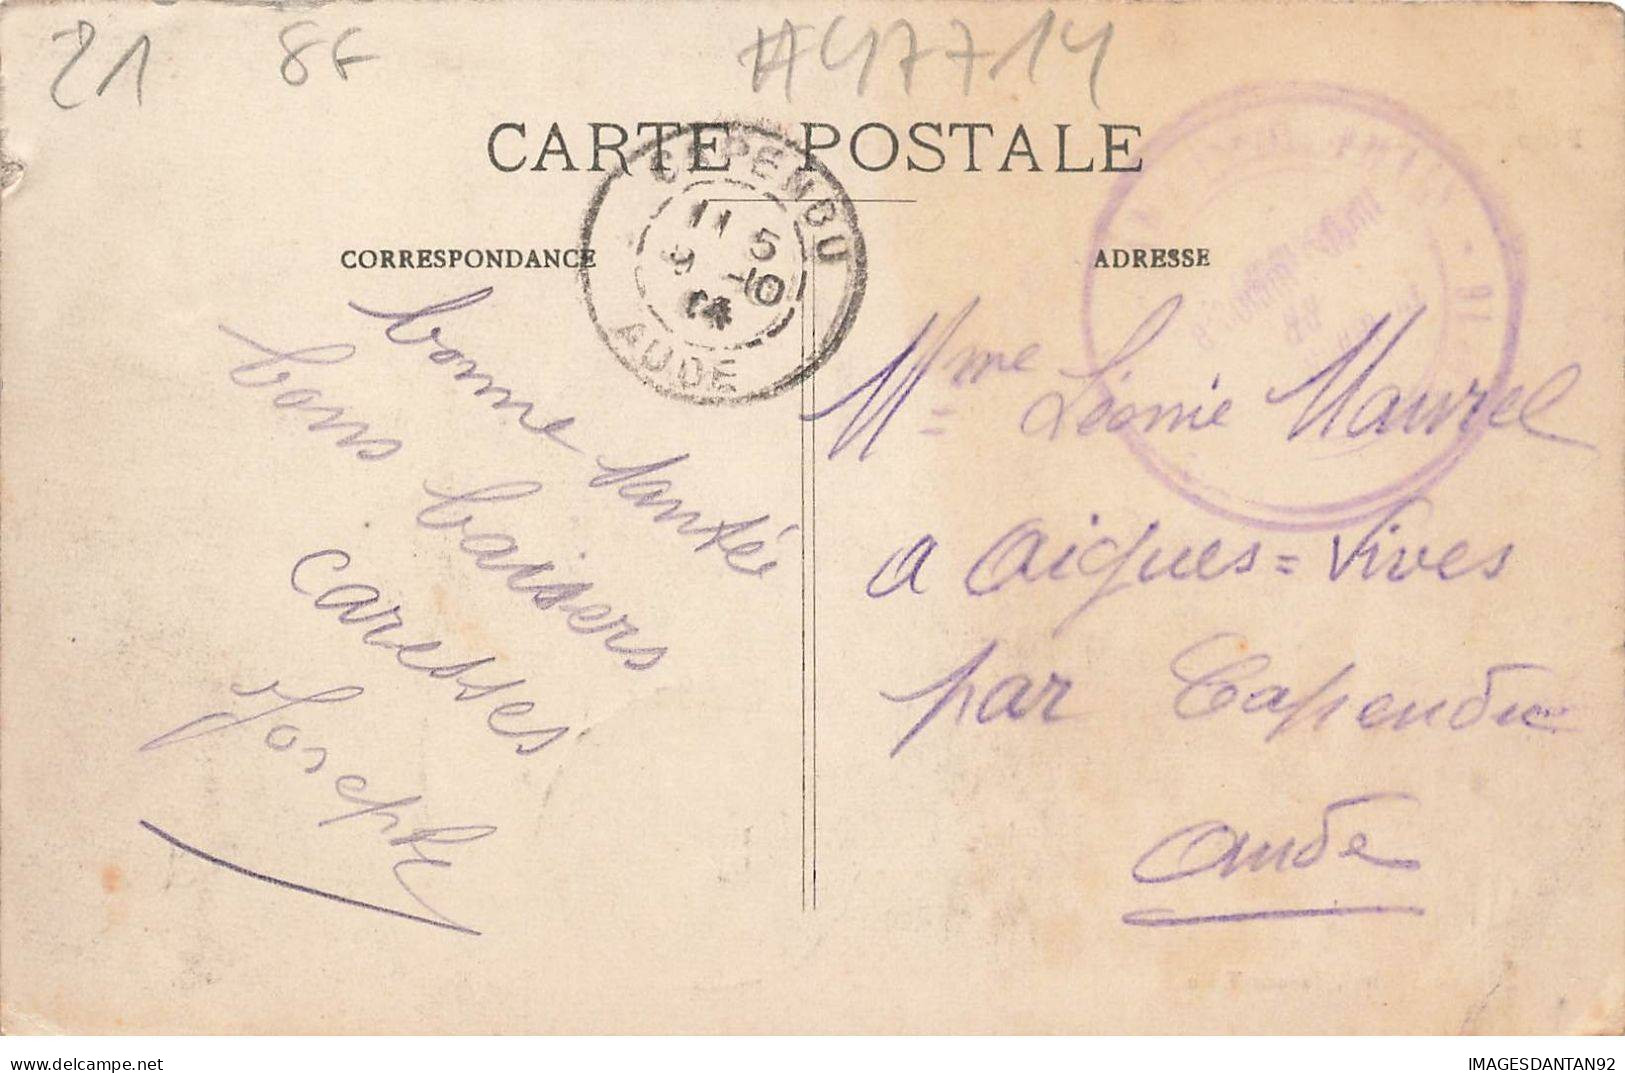 21 8€ #47714
CARTE POSTALE
CAPENDU
11 5
9 10
14
AUDE
CORRESPONDANCE
bonne santé
bons baisers
caresses
Joseph
ADRESSE
Mme Léonie Maurel
a Aigues=Vives
par Capendu
Aude
delcampe.net
IMAGESDANTAN92